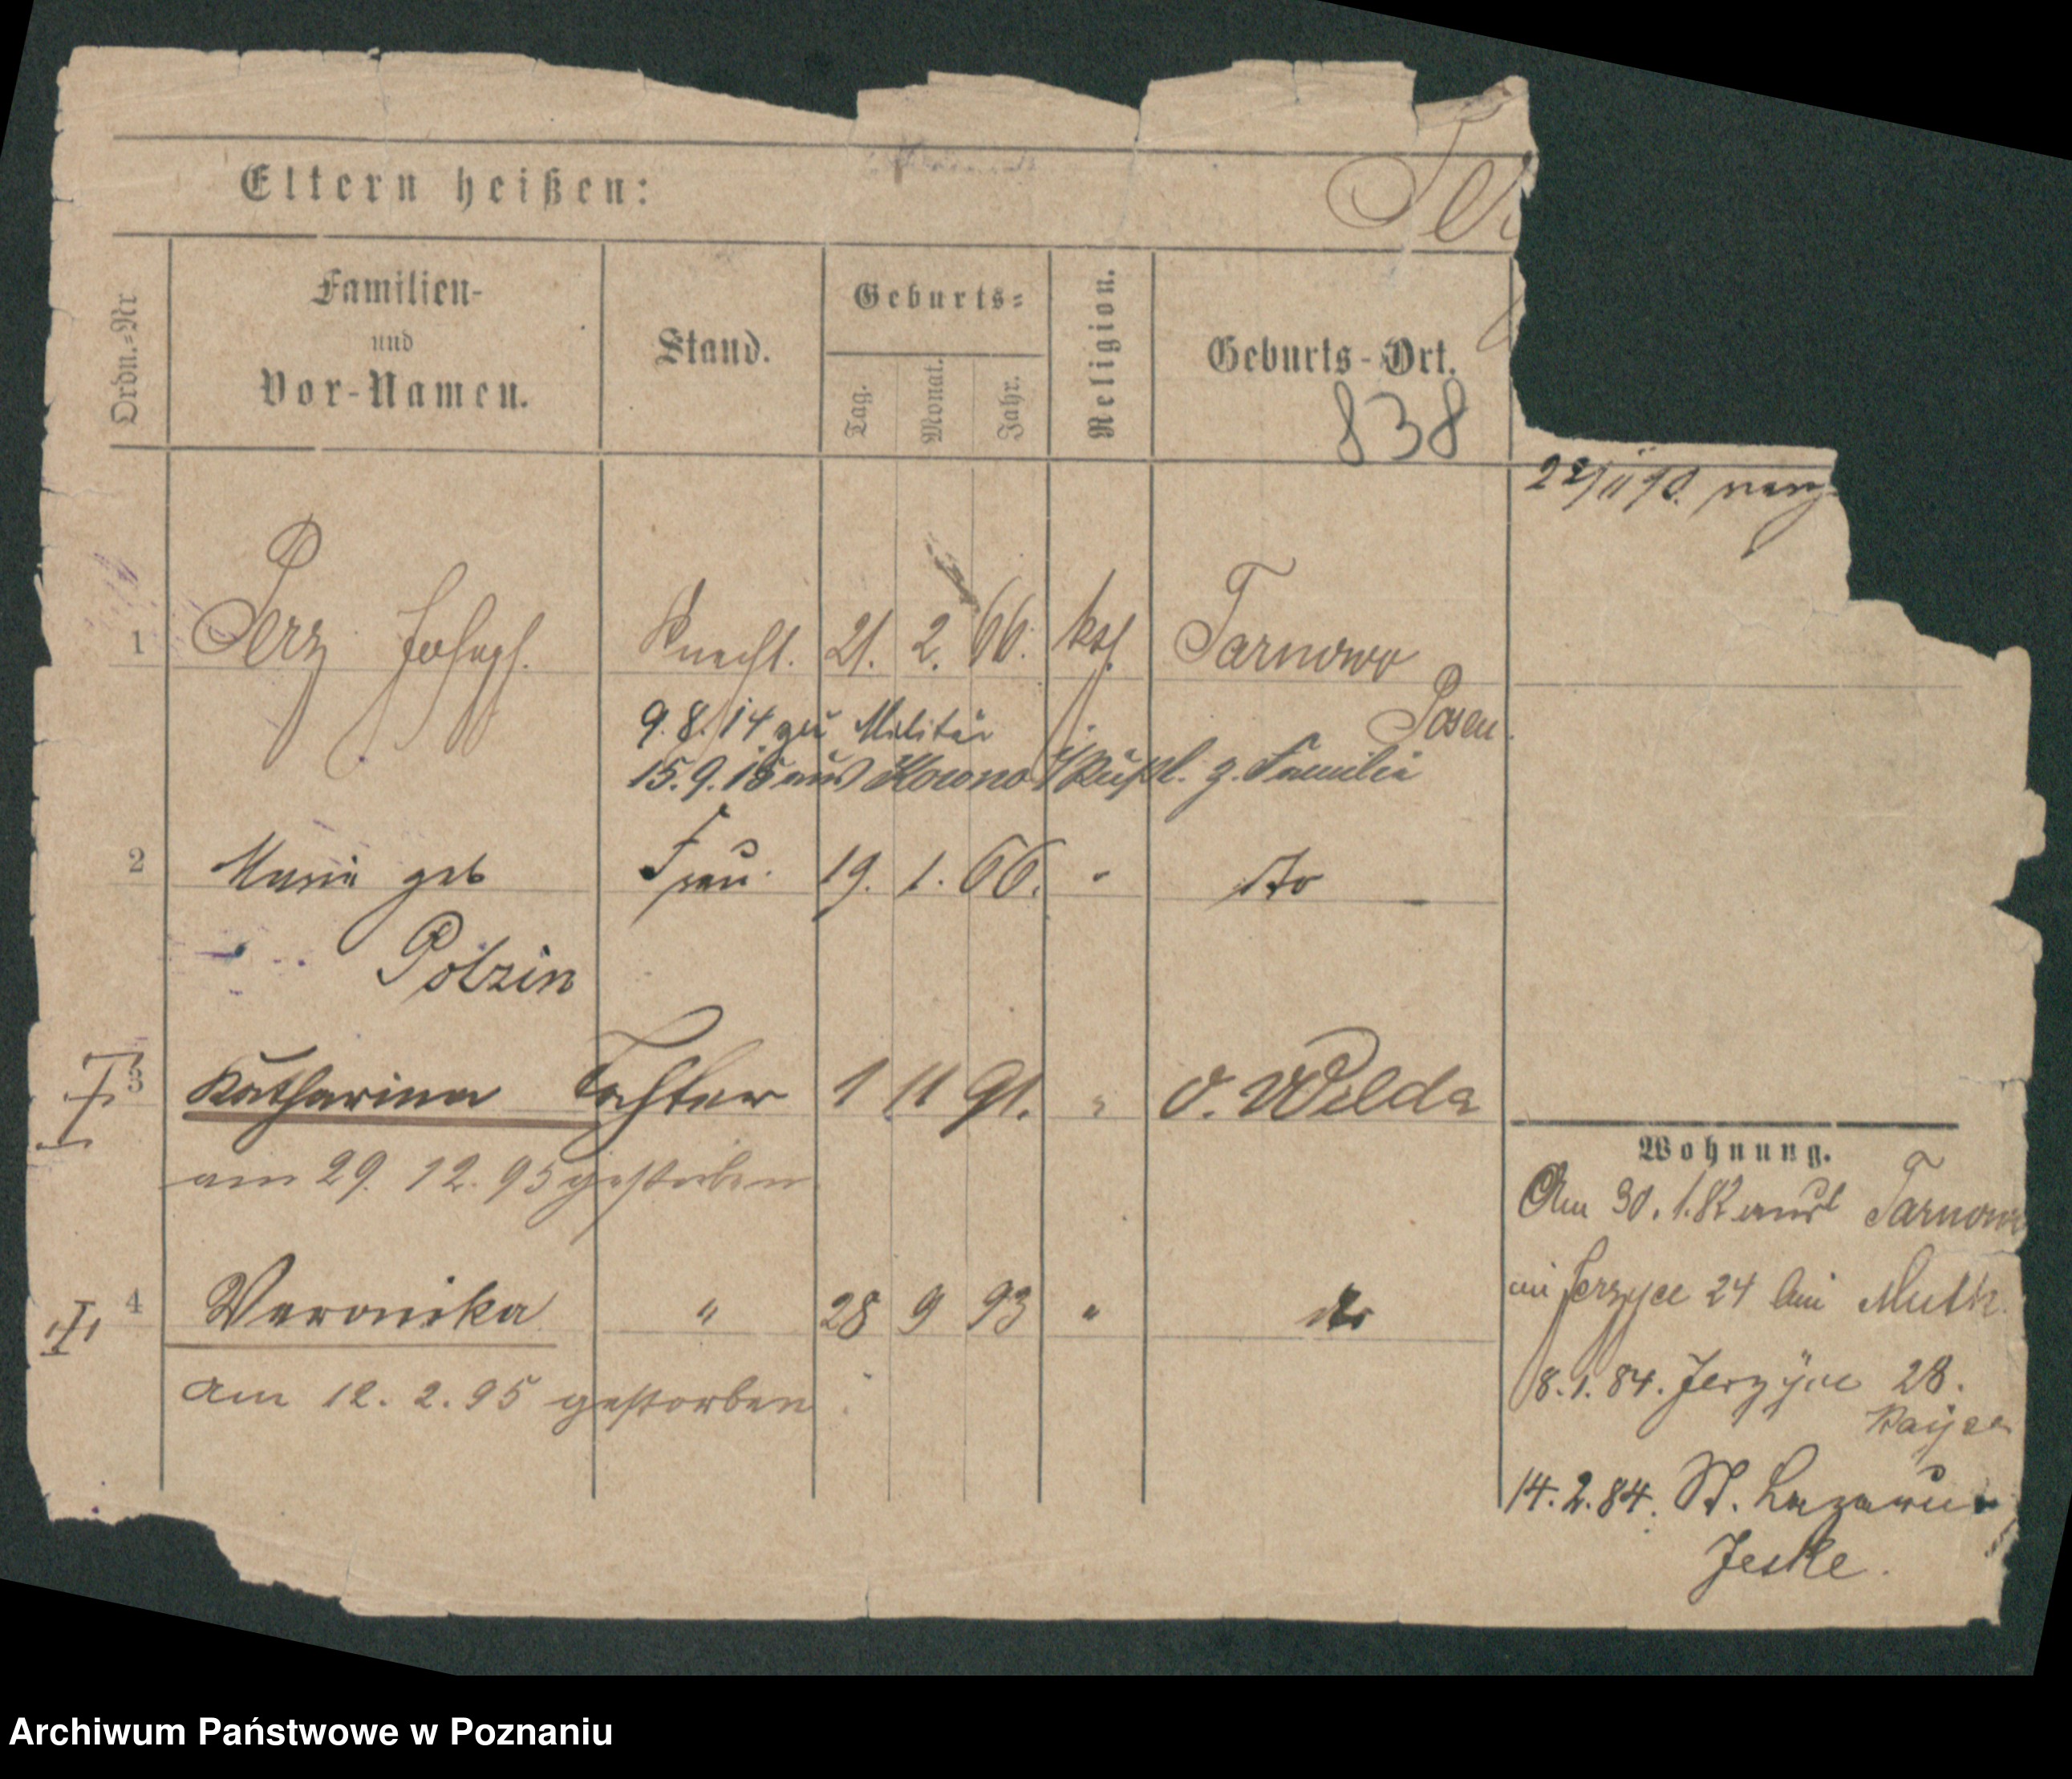 Eltern heißen:
Ordn.=Nr
Familien-
und
Vor-Namen.
Stand.
Geburts=
Tag.
Monat.
Jahr.
Religion.
Geburts-Ort.
838
1 Perz Joseph. Knecht. 21. 2. 66. kath. Tarnowo
Posen.
9.8.14 zu Militär
15.9.15 aus Kowno z. Familie
2 Marie geb Frau. 19. 1. 66. " dto
Polzin
3 Katharina Tochter 1 11 91. " O. Wilda
am 29. 12. 95 gestorben
4 Veronika " 28 9 93 " dto
am 12. 2. 95 gestorben
Wohnung.
Am 30.1.82 aus Tarnowo
in Jerzyce 24 bei Muth.
8.1.84. Jerzyce 28.
14.2.84. St. Lazarus
Jeske.
Archiwum Państwowe w Poznaniu